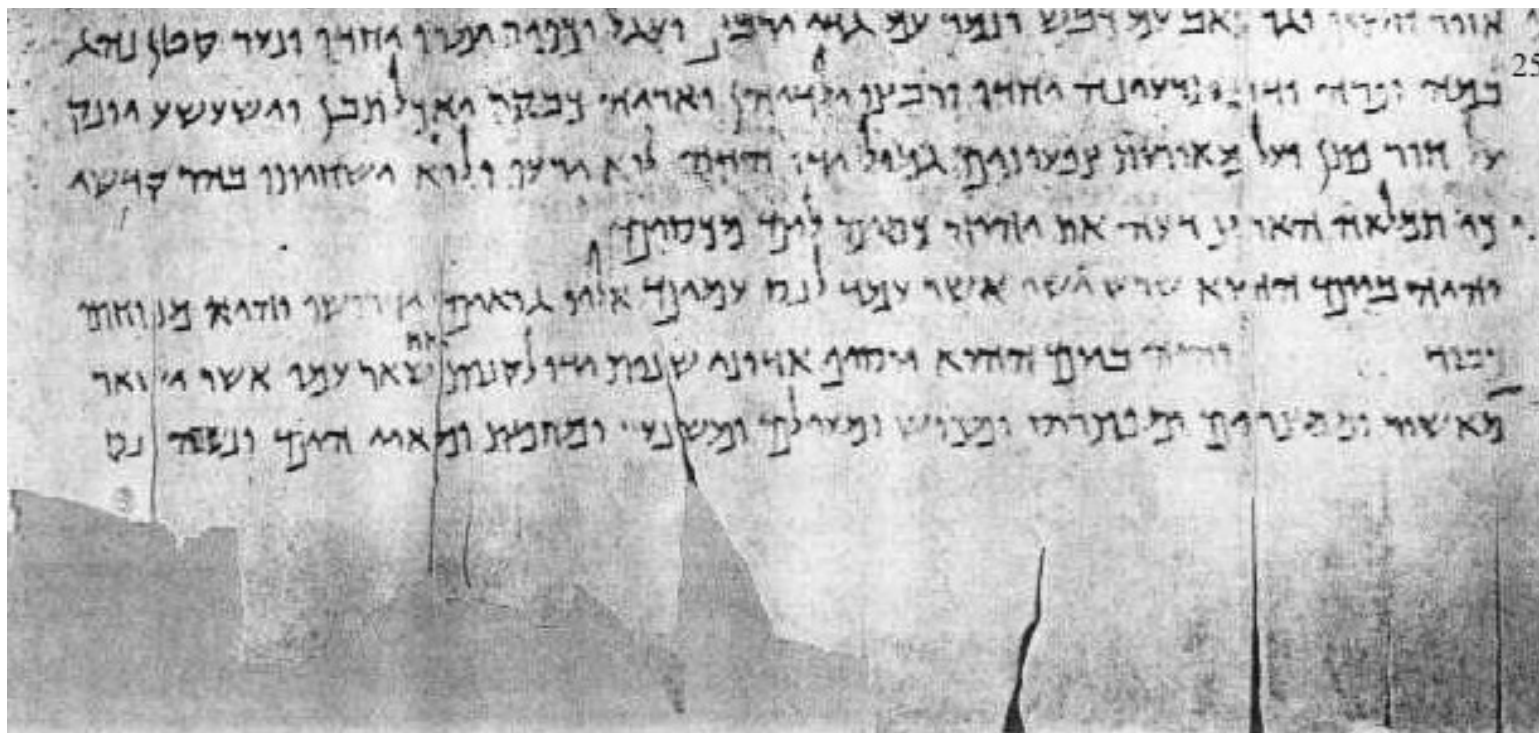 אזור חלציו וגר זאב עם כבש ונמר עם גדי ירבץ ועגל וכפיר ימרו יחדו ונער קטן נהג
25
במה ופרה ודוב תרעינה יחדו ורבצו ילדיהן ואריה כבקר יאכל תבן ושעשע יונק
על חור פתן ועל מאורות צפעונים גמול ידו לוא ירעו ולוא ישחיתו קדשי
כי תמלאה הארץ דעה את יהוה כמים לים מכסים
והיה ביום ההיא שרש ישי אשר עמד לנס עמים אליו גואים ידרשו מנוחתו
כבוד והיה ביום ההיא יוסיף אדוני שנית ידו לקנות את שאר עמו אשר ישאר
מאשור וממצרים ומפתרוס ומכוש ומעילם ומשנער ומחמת ומאיי הים ונשא נס